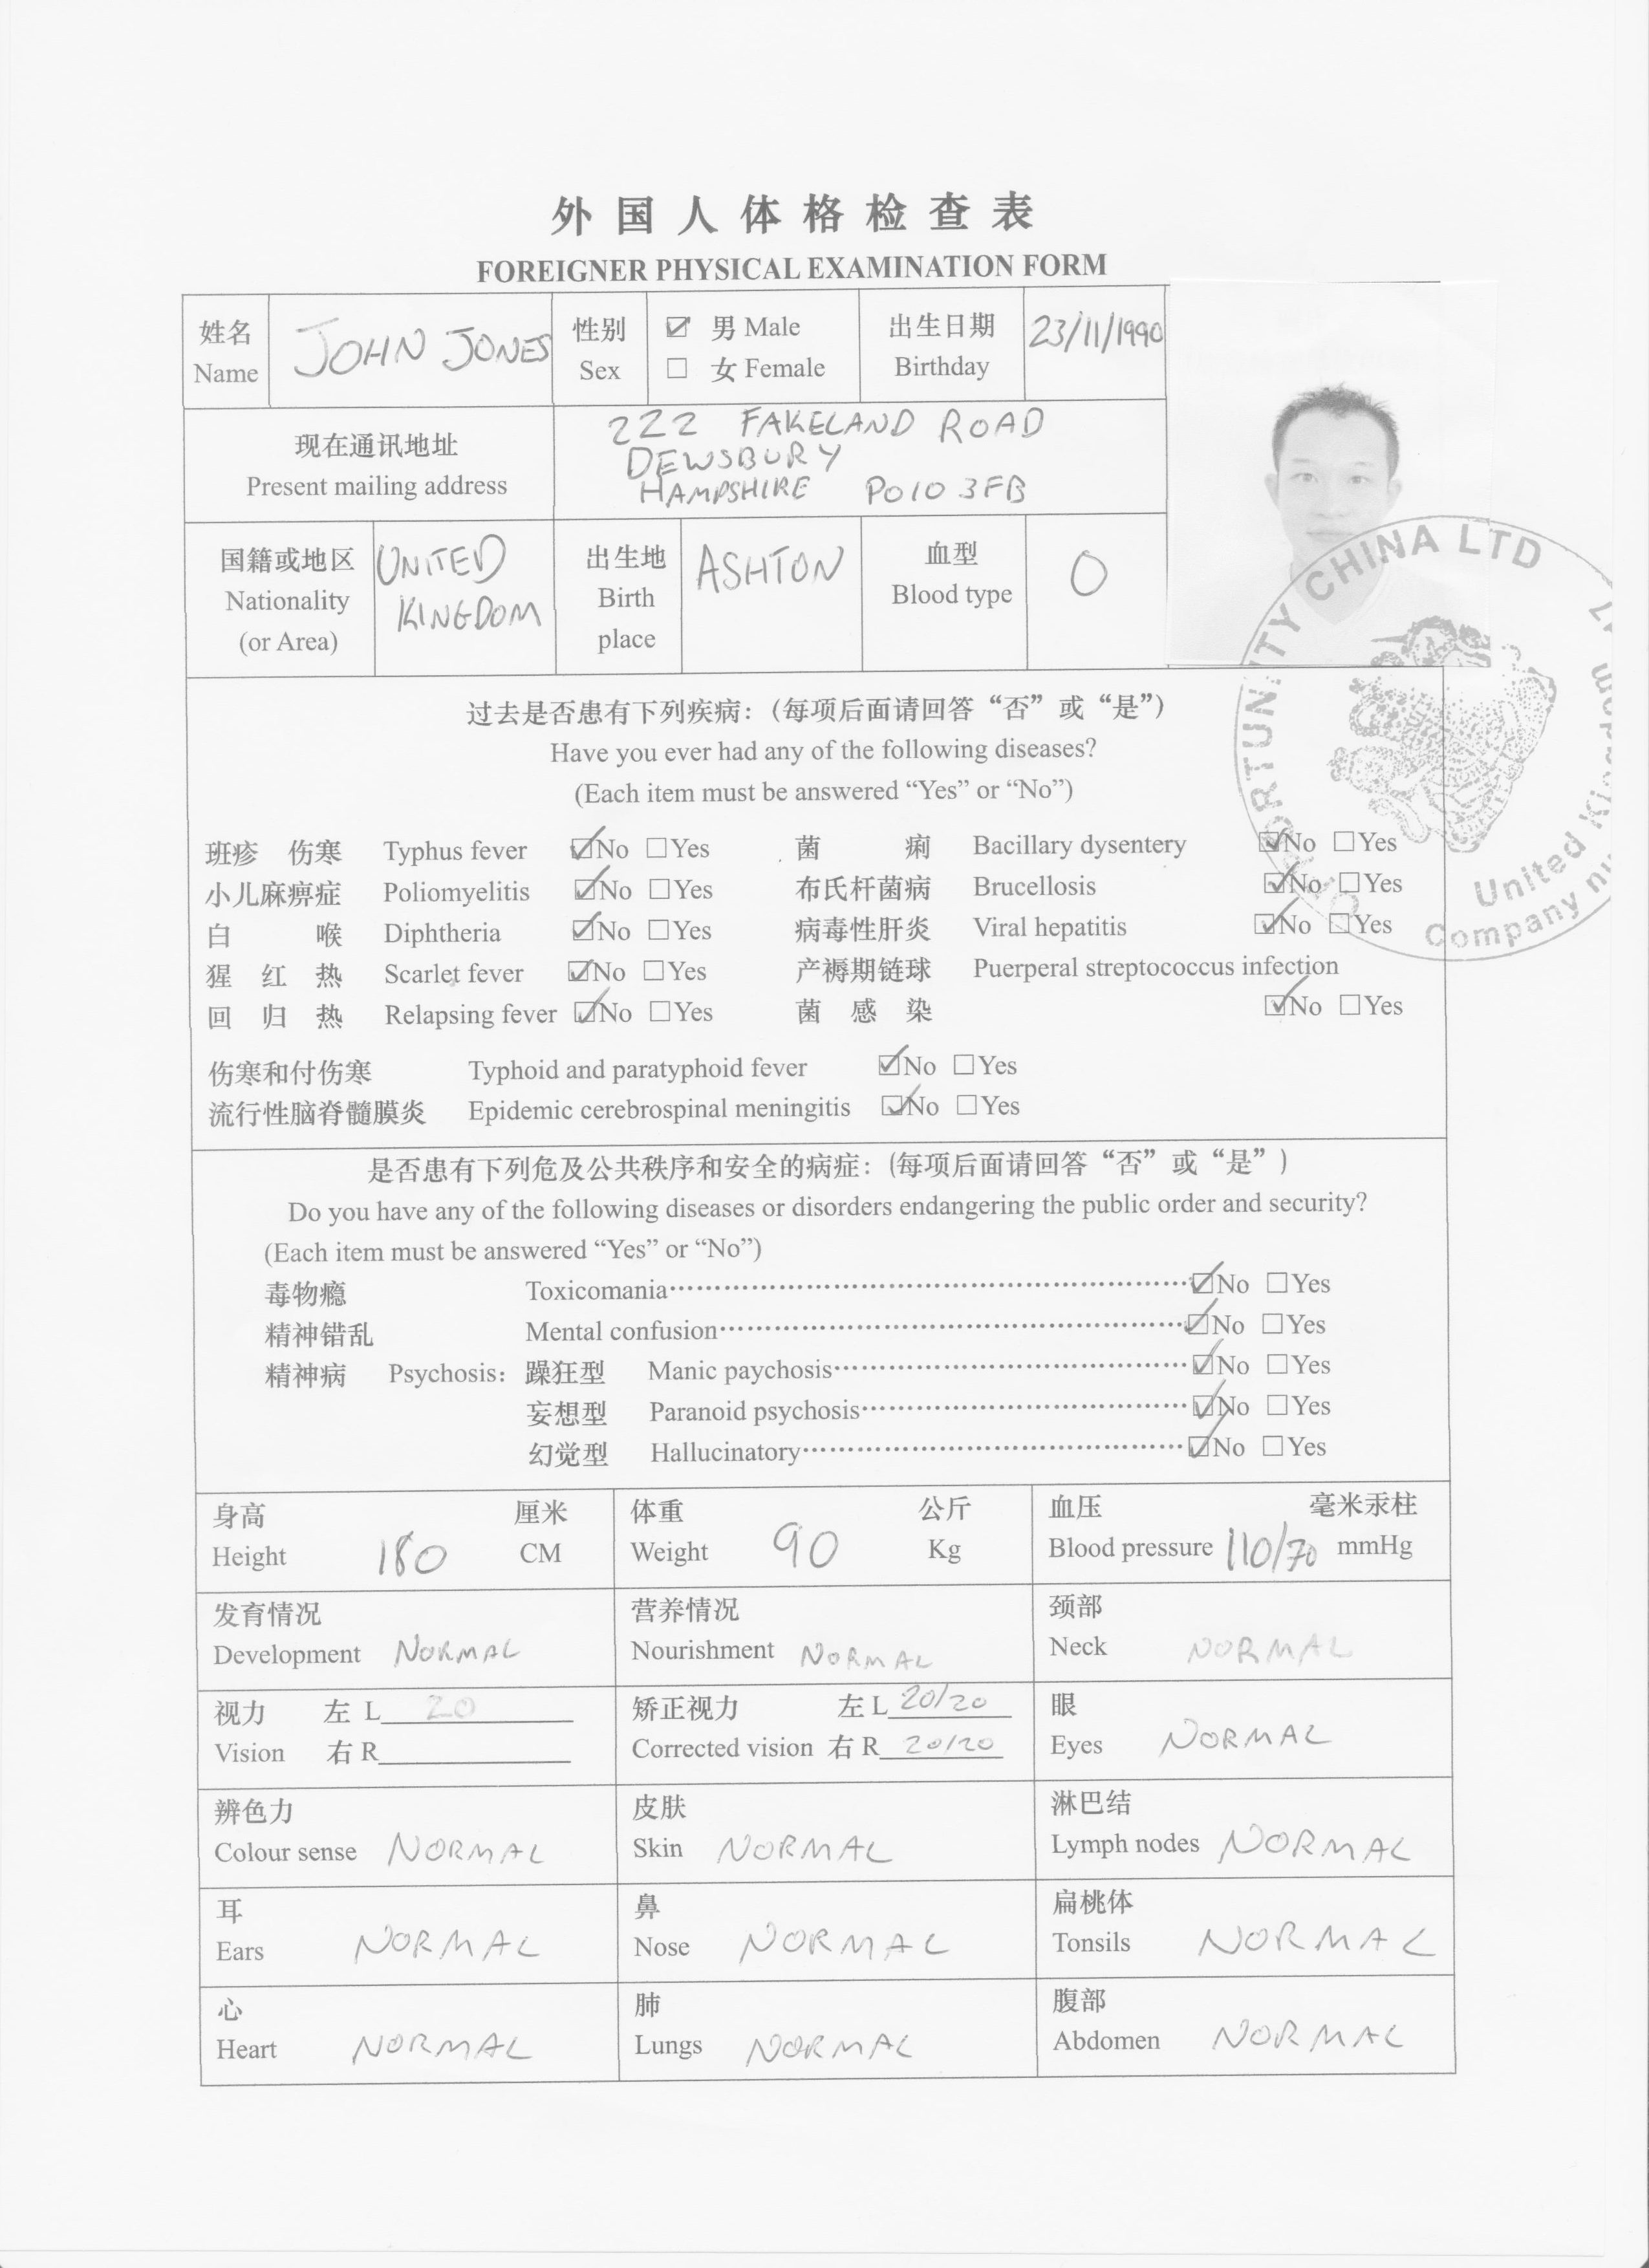 外国人体格检查表
FOREIGNER PHYSICAL EXAMINATION FORM
姓名 Name JOHN JONES 性别 Sex ☑ 男 Male ☐ 女 Female 出生日期 Birthday 23/11/1990
现在通讯地址 Present mailing address
222 FAKELAND ROAD
DEWSBURY
HAMPSHIRE PO10 3FB
国籍或地区 Nationality (or Area) UNITED KINGDOM 出生地 Birth place ASHTON 血型 Blood type O
CHINA LTD
United
Company
过去是否患有下列疾病：（每项后面请回答“否”或“是”）
Have you ever had any of the following diseases?
(Each item must be answered “Yes” or “No”)
班疹 伤寒 Typhus fever ☑No ☐Yes 菌 痢 Bacillary dysentery ☑No ☐Yes
小儿麻痹症 Poliomyelitis ☑No ☐Yes 布氏杆菌病 Brucellosis ☑No ☐Yes
白 喉 Diphtheria ☑No ☐Yes 病毒性肝炎 Viral hepatitis ☑No ☐Yes
猩 红 热 Scarlet fever ☑No ☐Yes 产褥期链球 Puerperal streptococcus infection
回 归 热 Relapsing fever ☑No ☐Yes 菌 感 染 ☑No ☐Yes
伤寒和付伤寒 Typhoid and paratyphoid fever ☑No ☐Yes
流行性脑脊髓膜炎 Epidemic cerebrospinal meningitis ☑No ☐Yes
是否患有下列危及公共秩序和安全的病症：（每项后面请回答“否”或“是”）
Do you have any of the following diseases or disorders endangering the public order and security?
(Each item must be answered “Yes” or “No”)
毒物瘾 Toxicomania ☑No ☐Yes
精神错乱 Mental confusion ☑No ☐Yes
精神病 Psychosis: 躁狂型 Manic paychosis ☑No ☐Yes
妄想型 Paranoid psychosis ☑No ☐Yes
幻觉型 Hallucinatory ☑No ☐Yes
身高 厘米 体重 公斤 血压 毫米汞柱
Height 180 CM Weight 90 Kg Blood pressure 110/70 mmHg
发育情况 营养情况 颈部
Development NORMAL Nourishment NORMAL Neck NORMAL
视力 左 L 20 矫正视力 左 L 20/20 眼
Vision 右 R Corrected vision 右 R 20/20 Eyes NORMAL
辨色力 皮肤 淋巴结
Colour sense NORMAL Skin NORMAL Lymph nodes NORMAL
耳 鼻 扁桃体
Ears NORMAL Nose NORMAL Tonsils NORMAL
心 肺 腹部
Heart NORMAL Lungs NORMAL Abdomen NORMAL